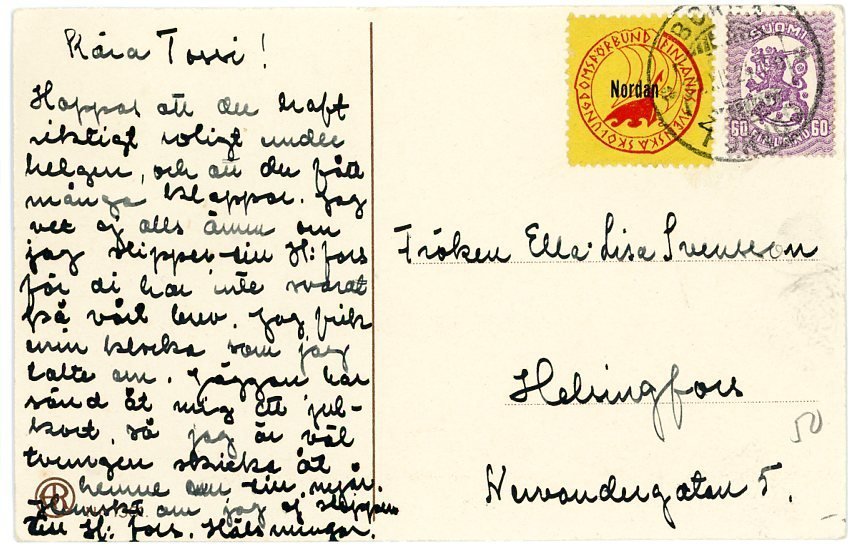 Kära Tossi!
Hoppas att du haft
riktigt roligt under
helgen, och att du fått
många klappar. Jag
vet ej alls ännu om
jag slipper till H:fors
för di har inte svarat
på vårt brev. Jag fick
min klocka som jag
talte om. Jäggan har
sänd åt mig ett jul-
kort, så jag är väl
tvungen skicka åt
henne ett till nyår.
Hemskt om jag ej slipper
till H:fors. Hälsningar.
SKOLUNGDOMSFÖRBUND FINLANDS SVENSKA
Nordan
SUOMI
60 FINLAND 60
Fröken Ella-Lisa Svensson
Helsingfors
Nervandergatan 5.
50